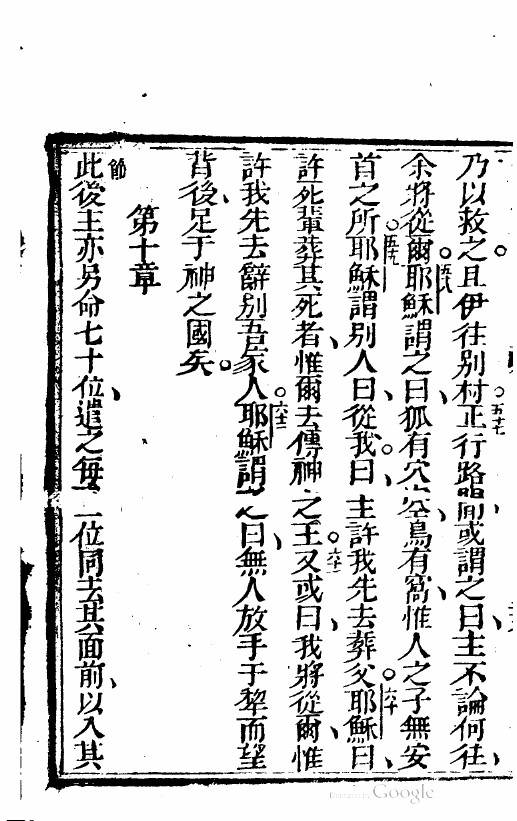 乃以救之且伊往別村。五十七正行路間或謂之曰主不論何往、
余將從爾。五八耶穌謂之曰狐有穴空鳥有窩惟人之子無安
首之所。五九耶穌謂別人曰從我。曰、主許我先去葬父。六十耶穌曰、
許死輩葬其死者、惟爾去傳神之王。六一又或曰、我將從爾、惟
許我先去辭別吾家人。六二耶穌謂之曰、無人放手于犂而望
背後、足于神之國矣。
第十章
節此後主亦另命七十位、遣之每二位同去其面前、以入其
Digitized by Google